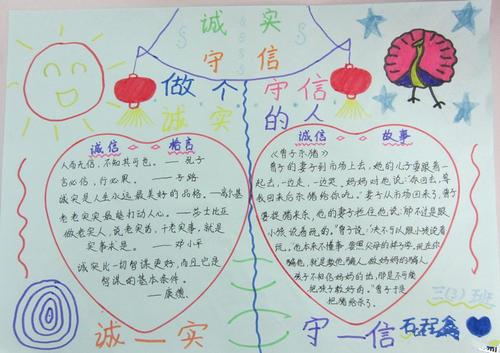 诚 实
守 信
做个 守信
诚实 的人
诚信 格言
人而无信，不知其可也。——孔子
言必信，行必果。——子路
诚实是人生永远最美好的品格。——高尔基
老老实实最能打动人心。——莎士比亚
做老实人，说老实话，干老实事，就是
实事求是。——邓小平
诚实比一切智谋更好，而且它是
智谋的基本条件。
——康德
诚信 故事
《曾子杀猪》
曾子的妻子到市场上去，她的儿子要跟着一
起去，一边走，一边哭。妈妈对他说："你回去，等
我回来后杀猪给你吃。"妻子从市场回来了，曾子
要捉猪来杀，他的妻子拦住他说："那不过是跟
小孩说着玩的。"曾子说："决不可以跟小孩说着
玩。他本来不懂事，要照父母的样子学，现在你
骗他，就是教他骗人。做妈妈的骗人，
孩子不相信妈妈的话，那是不可能
把孩子教好的。"曾子于是
把猪给杀了。
三(3)班
诚—实
守—信